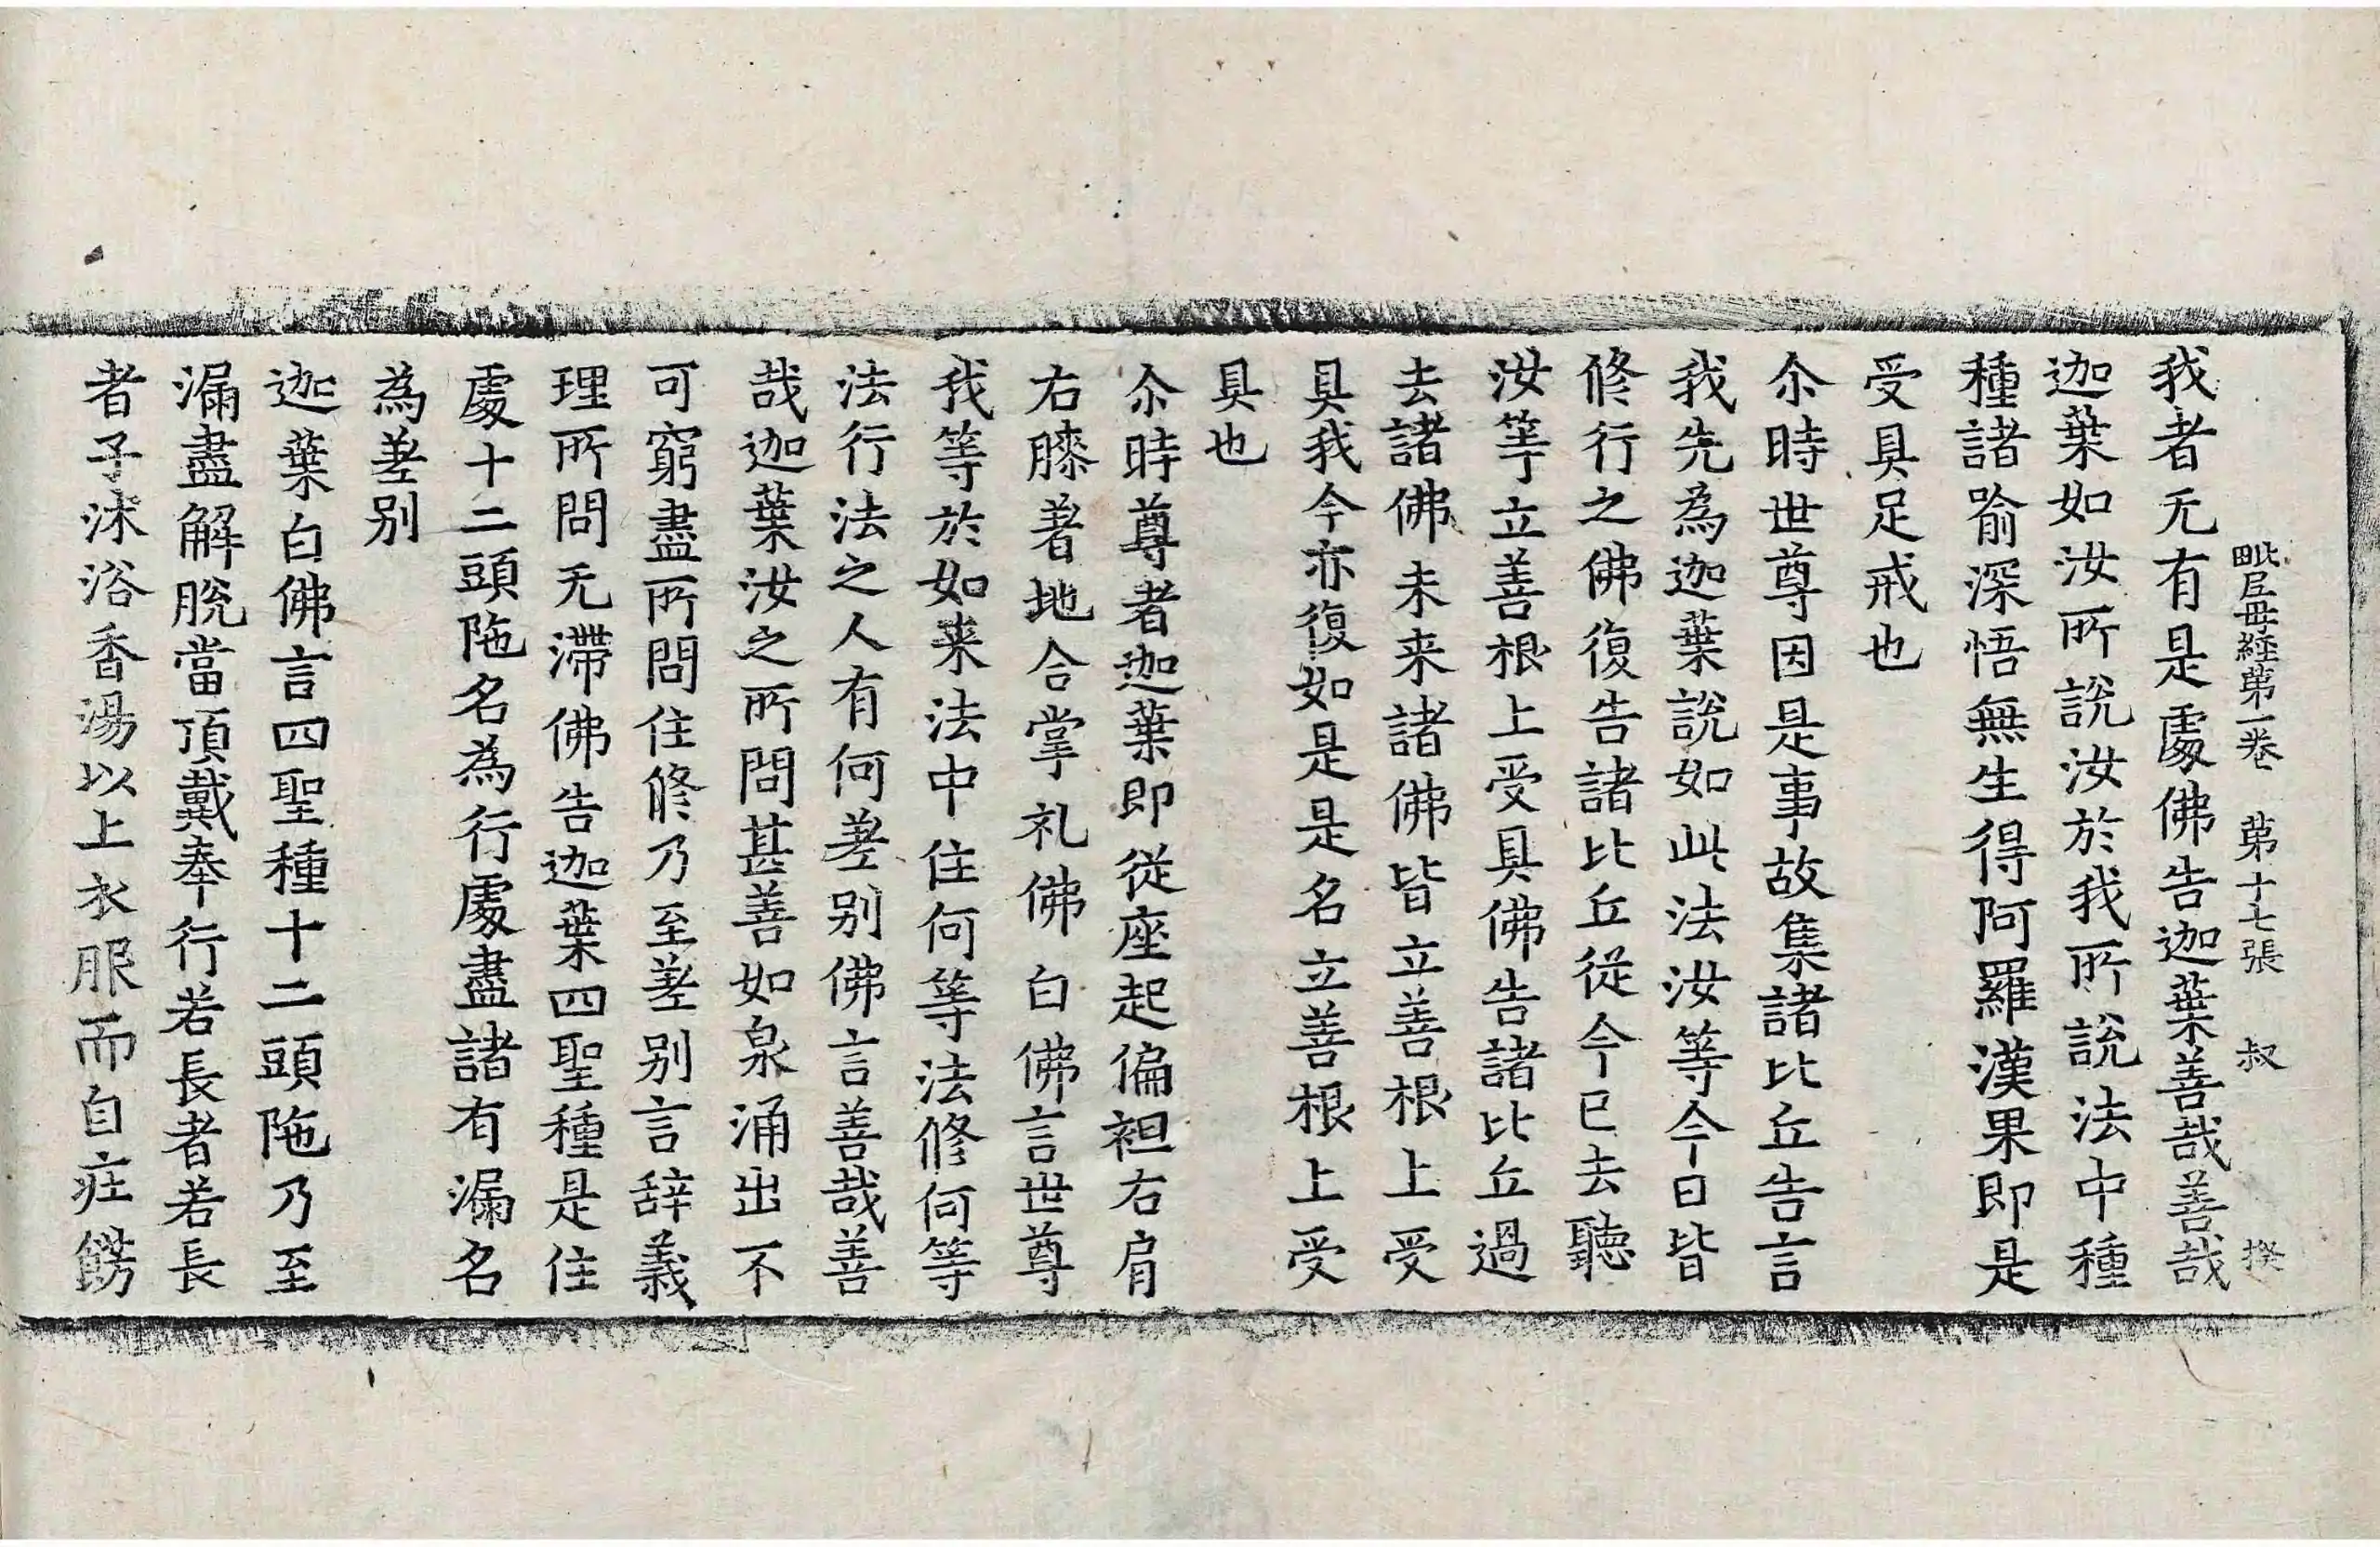 毗尼母経第一卷 第十七張 叔 揆
我者无有是處佛告迦葉善哉善哉
迦葉如汝所說汝於我所說法中種
種諸喻深悟無生得阿羅漢果即是
受具足戒也
尒時世尊因是事故集諸比丘告言
我先為迦葉說如此法汝等今日皆
修行之佛復告諸比丘從今已去聽
汝等立善根上受具佛告諸比丘過
去諸佛未来諸佛皆立善根上受
具我今亦復如是是名立善根上受
具也
尒時尊者迦葉即從座起偏袒右肩
右膝著地合掌礼佛白佛言世尊
我等於如来法中住何等法修何等
法行法之人有何差别佛言善哉善
哉迦葉汝之所問甚善如泉涌出不
可窮盡所問住修乃至差别言辞義
理所問无滯佛告迦葉四聖種是住
處十二頭陁名為行處盡諸有漏名
為差别
迦葉白佛言四聖種十二頭陁乃至
漏盡解脫當頂戴奉行若長者若長
者子沐浴香湯以上衣服而自庄餝